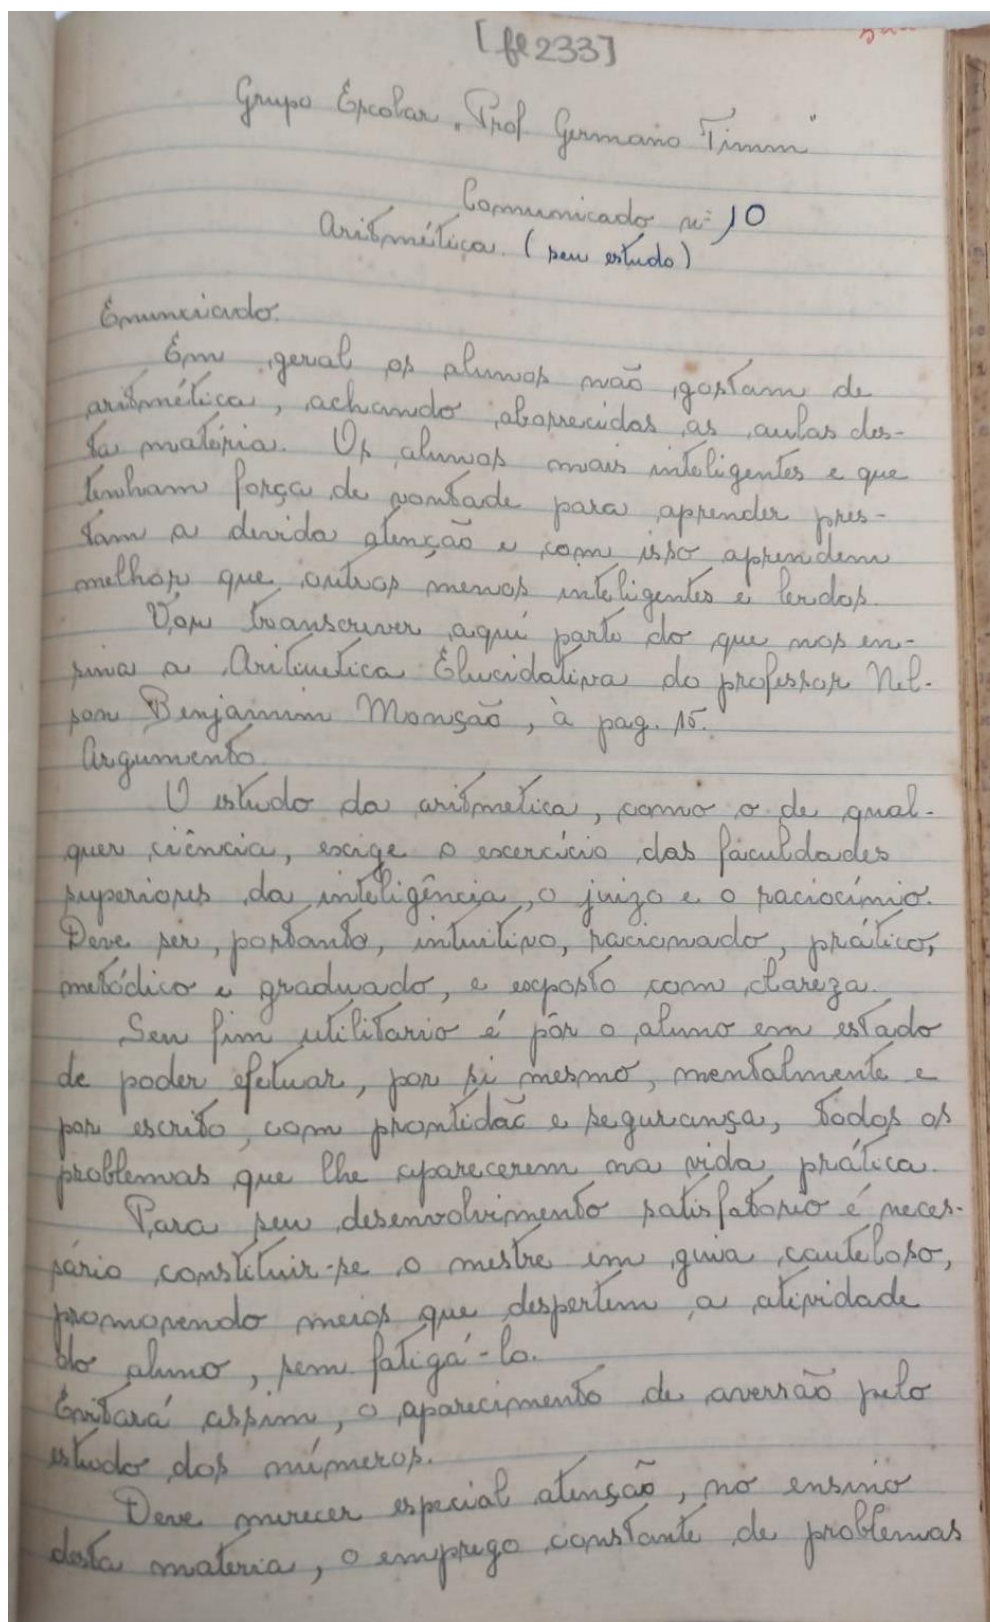 [fl 233]
Grupo Escolar "Prof Germano Timm"
Comunicado nº 10
Aritmética (seu estudo)
Enunciado.
Em geral os alunos não gostam de
aritmética, achando aborrecidas as aulas des-
ta matéria. Os alunos mais inteligentes e que
tenham força de vontade para aprender pres-
tam a devida atenção e com isso aprendem
melhor que outros menos inteligentes e lerdos.
Vou transcriver aqui parte do que nos en-
sina a Aritmetica Elucidativa do professor Nel-
son Benjamim Monção, à pag. 15.
Argumento.
O estudo da aritmetica, como o de qual-
quer ciência, exige o exercício das faculdades
superiores da inteligência, o juizo e o raciocínio.
Deve ser, portanto, intuitivo, racionado, prático,
metódico e graduado, e exposto com clareza.
Seu fim utilitario é pôr o aluno em estado
de poder efetuar, por si mesmo, mentalmente e
por escrito, com prontidão e segurança, todos os
problemas que lhe aparecerem na vida prática.
Para seu desenvolvimento satisfatorio é neces-
sário constituir-se o mestre em guia cauteloso,
promovendo meios que despertem a atividade
do aluno, sem fatigá-lo.
Evitará assim, o aparecimento de aversão pelo
estudo dos números.
Deve merecer especial atenção, no ensino
desta materia, o emprego constante de problemas